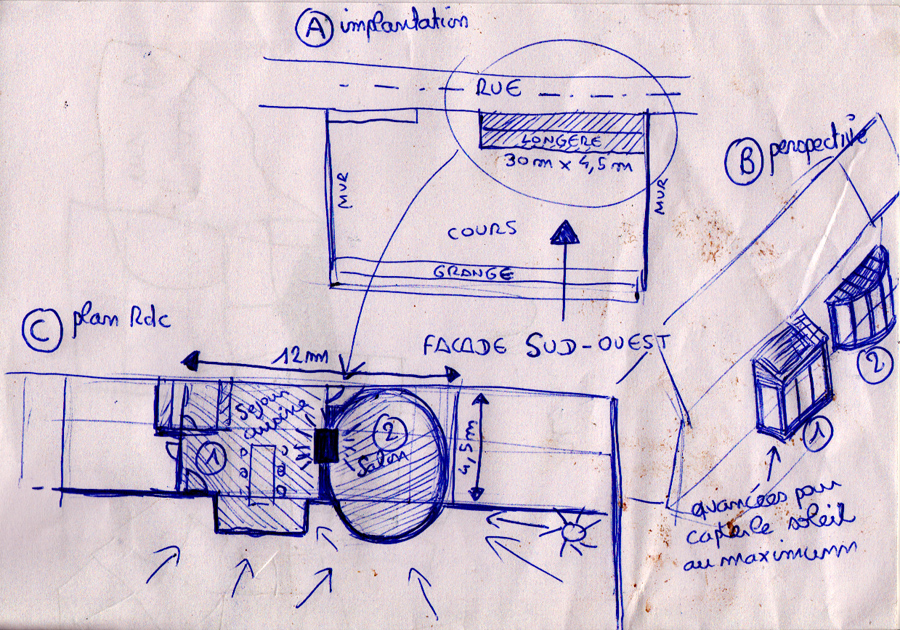 A implantation
RUE
LONGÈRE
30m x 4,5m
MUR
MUR
COURS
GRANGE
FACADE SUD-OUEST
B perspective
2
1
avancées pour
capter le soleil
au maximum
C plan Rdc
12m
Sejour
cuisine
1
2
Salon
4,5m